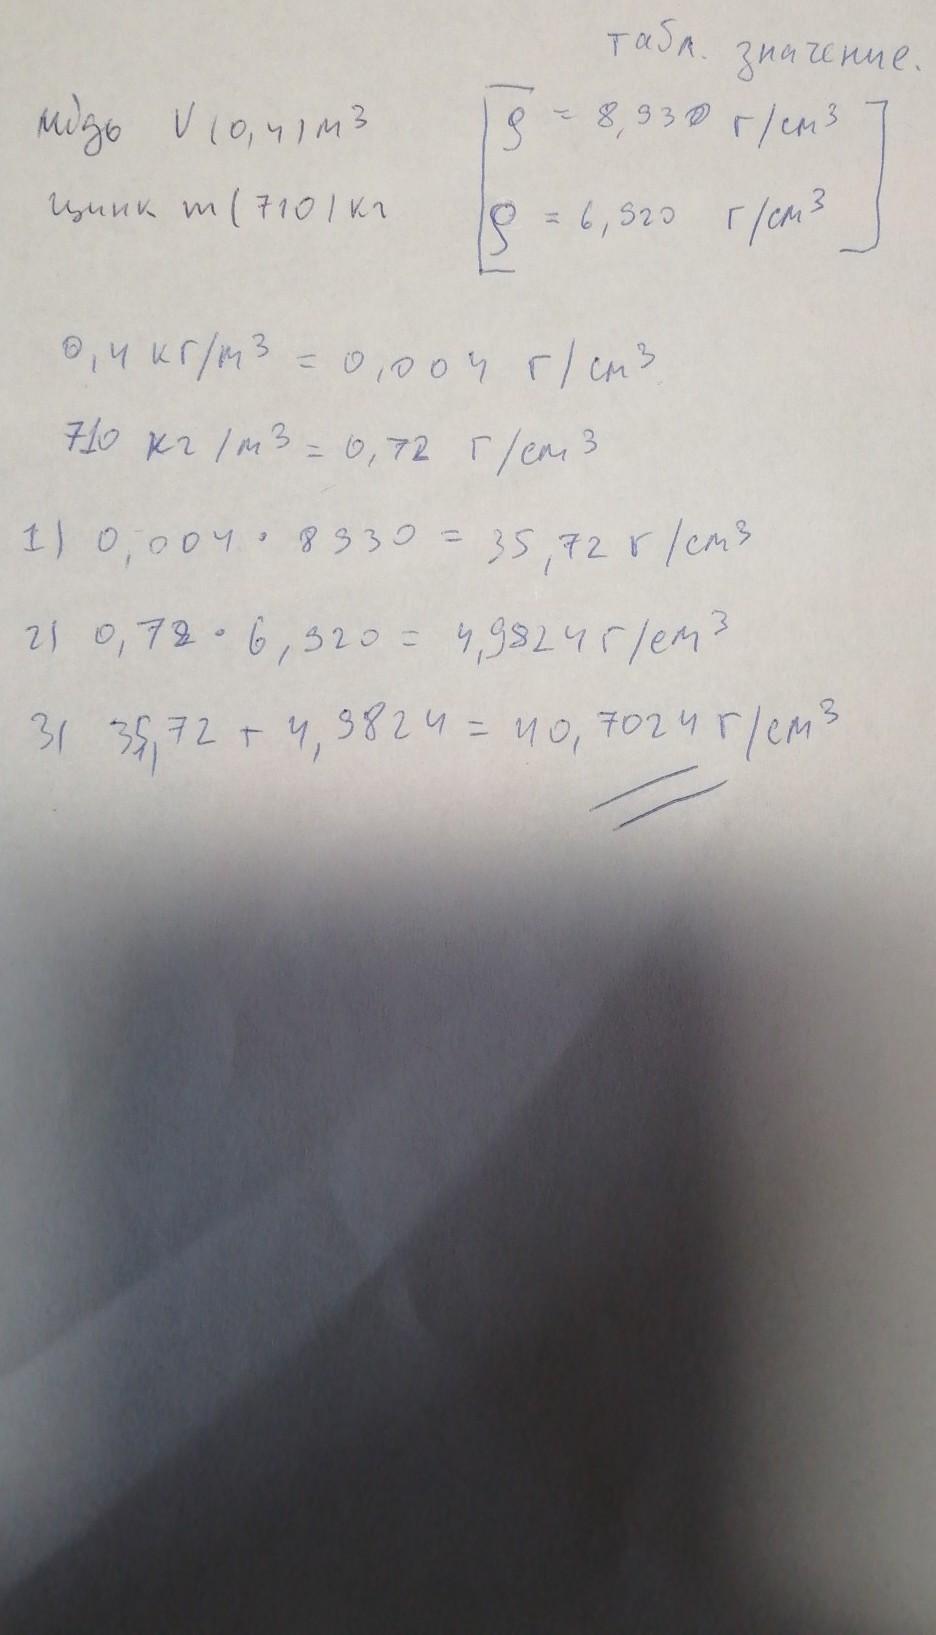 табл. значение.
медь V (0,4) м³ [ρ = 8,930 г/см³
цинк m (710) кг ρ = 6,920 г/см³]
0,4 кг/м³ = 0,004 г/см³
710 кг/м³ = 0,72 г/см³
1) 0,004 · 8930 = 35,72 г/см³
2) 0,72 · 6,920 = 4,9824 г/см³
3) 35,72 + 4,9824 = 40,7024 г/см³